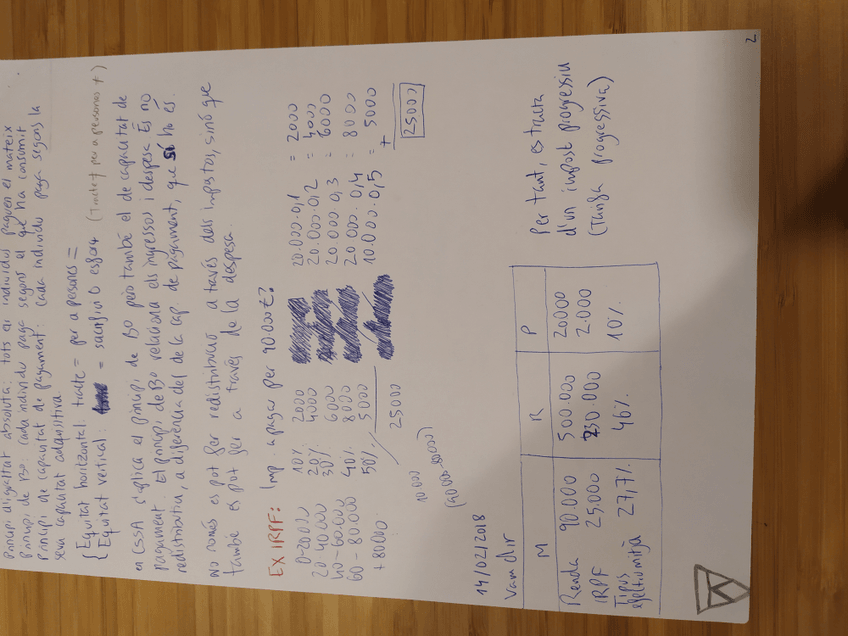 Principi d'igualtat absoluta: tots els individus paguen el mateix
principi de BO: cada individu paga segons el que ha consumit
principi de capacitat de pagament: cada individu paga segons la
seva capacitat adquisitiva
{ Equitat horitzontal: tracte = per a persones =
{ Equitat vertical: = sacrifici o esforç (Tracte ≠ per a persones ≠)
CSSA s'aplica el principi de BO però també el de capacitat de
pagament. El principi de BO relaciona els ingressos i despesa. És no
redistributiu, a diferència del de la cap. de pagament, que sí ho és.
No només es pot fer redistribució a través dels impostos, sinó que
també es pot fer a través de la despesa.
EX IRPF: Imp. a pagar per 90.000€?
0-20.000 10% 2000 20.000·0,1 = 2000
20-40.000 20% 4000 20.000·0,2 = 4000
40-60.000 30% 6000 20.000·0,3 = 6000
60-80.000 40% 8000 20.000·0,4 = 8000
+80000 50% 5000 10.000·0,5 = 5000
+
25000 25000
10.000
(90.000-80.000)
14/02/2018
Vam dir
M R P
Renda 90.000 500.000 20000
IRPF 25.000 230.000 2.000
Tipus efectiu mitjà 27,7% 46% 10%
Per tant, es tracta
d'un impost progressiu
(Tarifa progressiva)
2